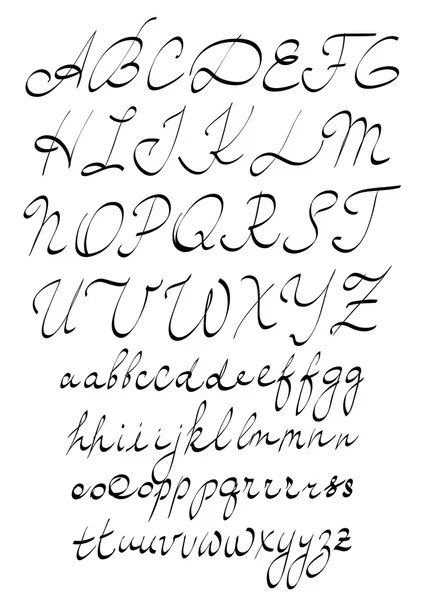 ABCDEFG
HIJKLM
NOPQRST
UVWXYZ
aabbccddeeffgg
hhiiijkllmmnn
ooooppppqrrrrss
ttuuvuwwxyyzz